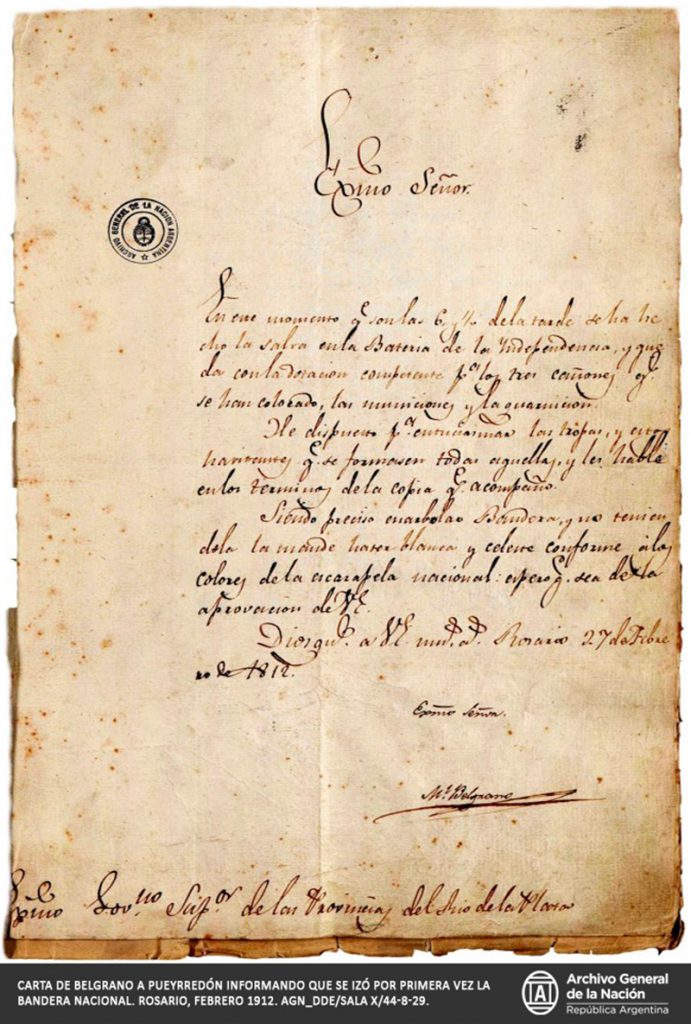 Exmo Señor.
ARCHIVO GENERAL DE LA NACION ARGENTINA
En este momento q.e son las 6 y ½ de la tarde se ha he
cho la salva en la Bateria de la Independencia, y que
da con la dotacion competente p.a los tres cañones q.e
se han colocado, las municiones y la guarnicion.
He dispuesto p.a entusiasmar las tropas, y estos
havitantes q.e se formasen todas aquellas, y les hablé
en los terminos de la copia q.e acompaño.
Siendo preciso enarbolar Bandera, y no tenien
dola la mandé hacer blanca y celeste conforme à los
colores de la escarapela nacional: espero q.e sea de la
aprovacion de VE.
Dios gu.e a VE. mu.s a.s Rosario 27 de Febre
ro de 1812.
Exmo Señor.
M.l Belgrano
Exmo Gov.no Sup.or de las Provincias del Rio de la Plata
CARTA DE BELGRANO A PUEYRREDÓN INFORMANDO QUE SE IZÓ POR PRIMERA VEZ LA
BANDERA NACIONAL. ROSARIO, FEBRERO 1912. AGN_DDE/SALA X/44-8-29.
Archivo General
de la Nación
República Argentina